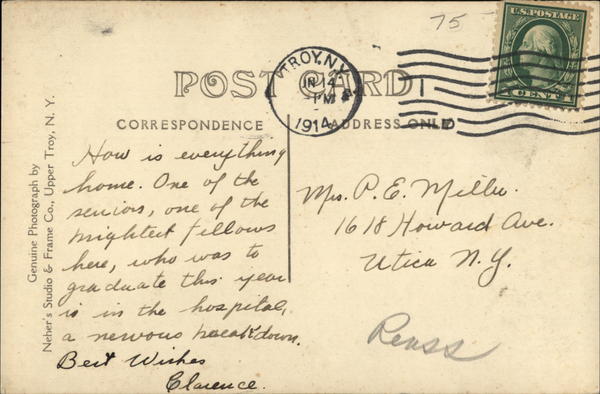 75
U.S. POSTAGE
1 CENT 1
TROY, N.Y.
JN 14
PM
1914
POST CARD
CORRESPONDENCE
ADDRESS ONLY
Genuine Photograph by
Neher's Studio & Frame Co., Upper Troy, N. Y.
How is everything
home. One of the
seniors, one of the
brightest fellows
here, who was to
graduate this year
is in the hospital,
a nervous breakdown.
Best Wishes
Clarence.
Mrs. P. E. Miller.
1618 Howard Ave.
Utica N.Y.
Renss